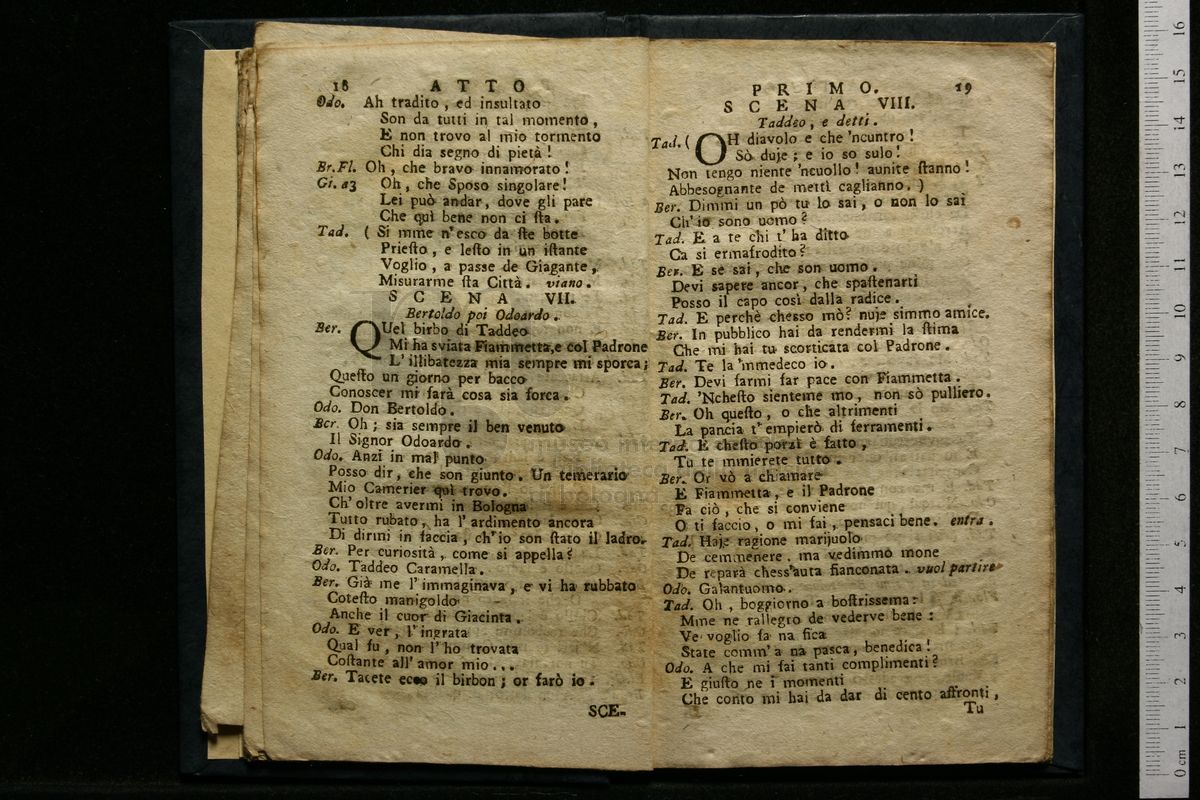 18 ATTO
Odo. Ah tradito, ed insultato
Son da tutti in tal momento,
E non trovo al mio tormento
Chi dia segno di pietà!
Br.Fl. Oh, che bravo innamorato!
Gi. a3 Oh, che Sposo singolare!
Lei può andar, dove gli pare
Che quì bene non ci sta.
Tad. (Si mme n'esco da ste botte
Priesto, e lesto in un istante
Voglio, a passe de Giagante,
Misurarme sta Città. viano.
SCENA VII.
Bertoldo poi Odoardo.
Ber. QUel birbo di Taddeo
Mi ha sviata Fiammetta, e col Padrone
L'illibatezza mia sempre mi sporca;
Questo un giorno per bacco
Conoscer mi farà cosa sia forca.
Odo. Don Bertoldo.
Ber. Oh; sia sempre il ben venuto
Il Signor Odoardo.
Odo. Anzi in mal punto
Posso dir, che son giunto. Un temerario
Mio Camerier quì trovo.
Ch'oltre avermi in Bologna
Tutto rubato, ha l'ardimento ancora
Di dirmi in faccia, ch'io son stato il ladro.
Ber. Per curiosità, come si appella?
Odo. Taddeo Caramella.
Ber. Già me l'immaginava, e vi ha rubbato
Cotesto manigoldo
Anche il cuor di Giacinta.
Odo. E ver, l'ingrata
Qual fu, non l'ho trovata
Costante all'amor mio...
Ber. Tacete ecco il birbon; or farò io.
SCE-
PRIMO. 19
SCENA VIII.
Taddeo, e detti.
Tad. (OH diavolo e che 'ncuntro!
Sò duje; e io so sulo!
Non tengo niente 'ncuollo! aunite stanno!
Abbesognante de mettì caglianno.)
Ber. Dimmi un pò tu lo sai, o non lo sai
Ch'io sono uomo?
Tad. E a te chi t'ha ditto
Ca si ermafrodito?
Ber. E se sai, che son uomo.
Devi sapere ancor, che spastenarti
Posso il capo così dalla radice.
Tad. E perchè chesso mò? nuje simmo amice.
Ber. In pubblico hai da rendermi la stima
Che mi hai tu scorticata col Padrone.
Tad. Te la 'mmedeco io.
Ber. Devi farmi far pace con Fiammetta.
Tad. 'Nchesto sienteme mo, non sò pulliero.
Ber. Oh questo, o che altrimenti
La pancia t'empierò di ferramenti.
Tad. E chesto porzì è fatto,
Tu te mmierete tutto.
Ber. Or vò a chiamare
E Fiammetta, e il Padrone
Fa ciò, che si conviene
O ti faccio, o mi fai, pensaci bene. entra.
Tad. Haje ragione marijuolo
De cemmenere, ma vedimmo mone
De reparà chess'auta fianconata. vuol partire
Odo. Galantuomo.
Tad. Oh, boggiorno a bostrissema:
Mme ne rallegro de vederve bene:
Ve voglio fa na fica
State comm'a na pasca, benedica!
Odo. A che mi fai tanti complimenti?
E giusto ne i momenti
Che conto mi hai da dar di cento affronti,
Tu